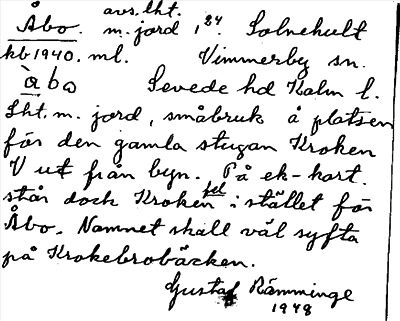 avs. lht.
Åbo. m. jord 1⁸⁴. Solnehult
kb 1940. ml. Vimmerby sn.
àbo Sevede hd Kalm l.
Lht. m. jord, småbruk å platsen
för den gamla stugan Kroken
V ut från byn. På ek-kart.
står dock Kroken fel i stället för
Åbo. Namnet skall väl syfta
på Krokebrobäcken.
Gustaf Rämminge
1948